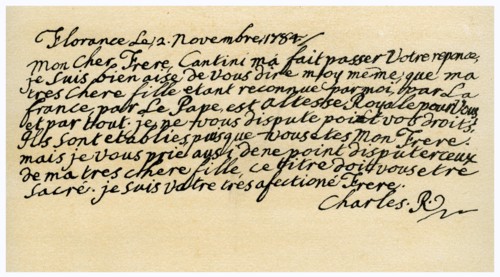 Florance Le, 2. Novembre, 1784
Mon Cher Frere, Cantini mà fait passer Votre reponce,
je Suis bien aise de Vous dire moy même, que ma
tres Chere fille etant reconnue par moi, par La
france, par Le Pape, est altesse Royale pour Vous
et par tout. je ne vous dispute point vos droits,
Ils Sont etablies puisque vous etes Mon Frere.
mais je Vous prie aussi de ne point disputer ceux
de ma tres chere fille, ce titre doit vous etre
Sacré. je suis Votre trés afectioné Frere.
Charles. R.